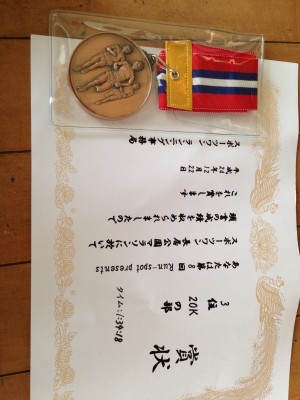 賞状
3位
20Kの部
タイム:1:39:18
あなたは第8回run-spot presents
スポーツワン長居公園マラソンに於いて
頭書の成績を収められましたので
これを賞します
平成24年12月22日
スポーツワンランニング事務局